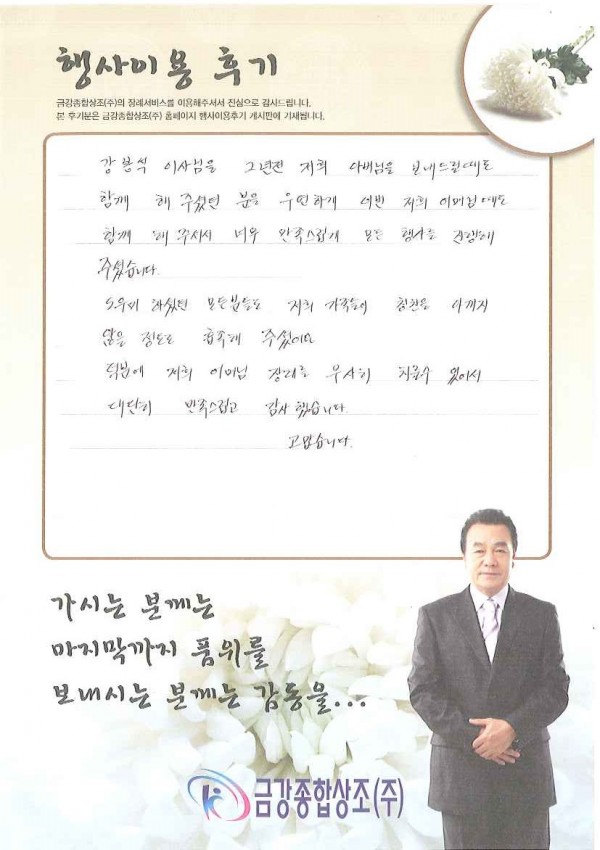 행사이용 후기
금강종합상조(주)의 장례서비스를 이용해주셔서 진심으로 감사드립니다.
본 후기분은 금강종합상조(주) 홈페이지 행사이용후기 게시판에 기재됩니다.
강봉석 이사님을 2년전 저희 아버님을 보내드릴때도
함께 해 주셨던 분을 우연하게 이번 저희 어머님때도
함께 해 주셔서 너무 만족스럽게 모든 행사를 진행해
주셨습니다.
도우미 하셨던 모든분들도 저희 가족들이 칭찬을 아끼지
않을 정도로 만족해 주셨으며
덕분에 저희 어머님 장례를 무사히 치를수 있어서
대단히 만족스럽고 감사했습니다.
고맙습니다.
가시는 분께는
마지막까지 품위를
보내시는 분께는 감동을...
금강종합상조(주)